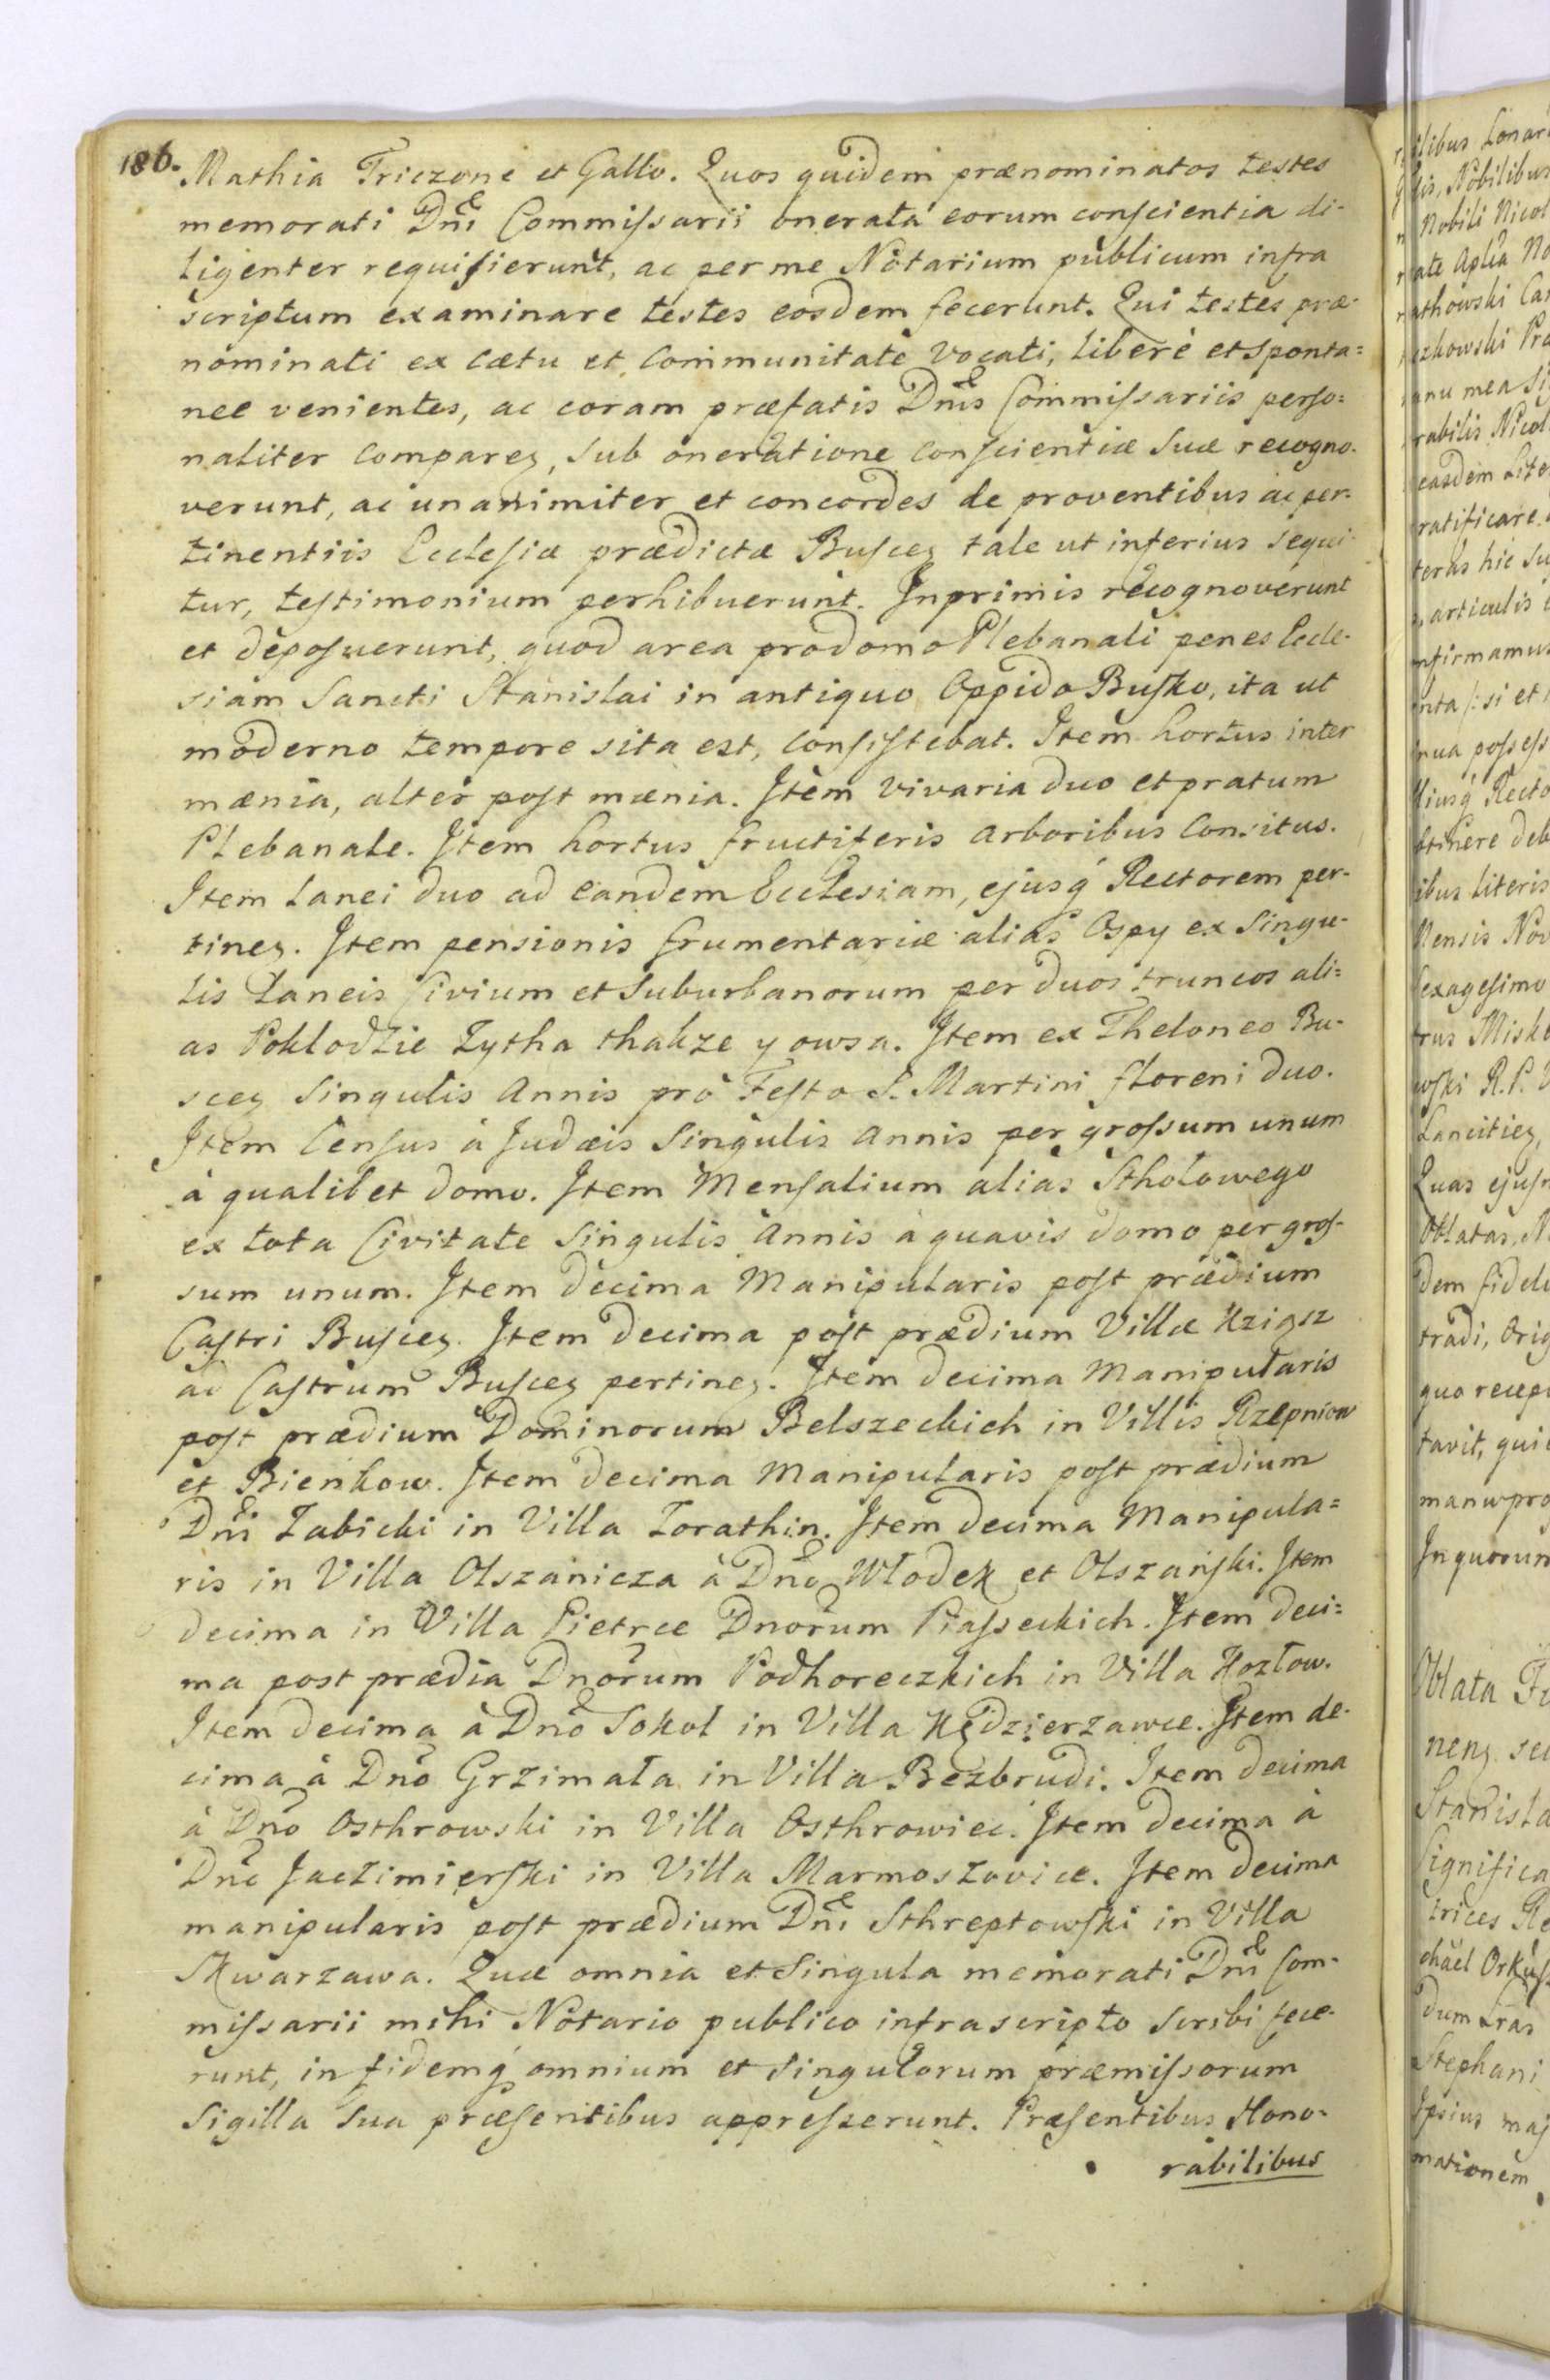 186.
Mathia Triczone et Gallo. Quos quidem prænominatos testes
memorati Dni Commissarii onerata eorum conscientia di-
ligenter requisierunt, ac per me Notarium publicum infra
scriptum examinare testes eosdem fecerunt. Qui testes præ-
nominati ex Cætu et Communitate vocati, libere et sponta=
nee venientes, ac coram præfatis Dnis Commissariis perso=
naliter Comparez, sub oneratione Conscientiæ Suæ recogno-
verunt, ac unanimiter et concordes de proventibus ac per-
tinentiis Ecclesiæ prædictæ Buscez tale ut inferius sequi-
tur, testimonium perhibuerunt. Inprimis recognoverunt
et deposuerunt, quod area pro domo Plebanali penes Eccle-
siam Sancti Stanislai in antiquo Oppido Busko, ita ut
moderno tempore sita est, Consistebat. Item hortus inter
mænia, alter post mænia. Item vivaria duo et pratum
Plebanale. Item hortus fructiferis arboribus Consitus.
Item Lanei duo ad eandem Ecclesiam, ejusq́ Rectorem per-
tinez. Item pensionis frumentariæ alias Ospy ex Singu-
lis Laneis Civium et Suburbanorum per duos truncos ali=
as Poklodzie Zytha thakze y owsa. Item ex Theloneo Bu-
scez Singulis Annis pro Festo S. Martini floreni duo.
Item Census à Judæis Singulis Annis per grossum unum
à qualibet domo. Item Mensalium alias Stholowego
ex tota Civitate Singulis Annis a quavis domo per gros-
sum unum. Item decima Manipularis post prædium
Castri Buscez. Item decima post prædium Villæ Kziasz
ad Castrum Buscez pertinez. Item decima Manipularis
post prædium Dominorum Belszeckich in Villis Rzepniow
et Bienkow. Item decima Manipularis post prædium
Dni Zabicki in Villa Torathin. Item decima Manipula=
ris in Villa Olszanicza à Dno Włodek et Olszański. Item
decima in Villa Pietrce Dnorum Piasseckich. Item deci=
ma post prædia Dnorum Podhoreczkich in Villa Kozłow.
Item decima à Dno Sokol in Villa Kędzierzawce. Item de-
cima à Dno Grzimała in Villa Bezbrudi. Item decima
à Dno Osthrowski in Villa Osthrowiec. Item decima à
Dno Jaczimierski in Villa Marmoszovice. Item decima
manipularis post prædium Dni Sthreptowski in Villa
Skwarzawa. Quæ omnia et Singula memorati Dni Com-
missarii mihi Notario publico infrascripto scribi fece-
runt, in fidemq́ omnium et Singulorum præmissorum
Sigilla Sua præsentibus appresserunt. Præsentibus Hono-
rabilibus